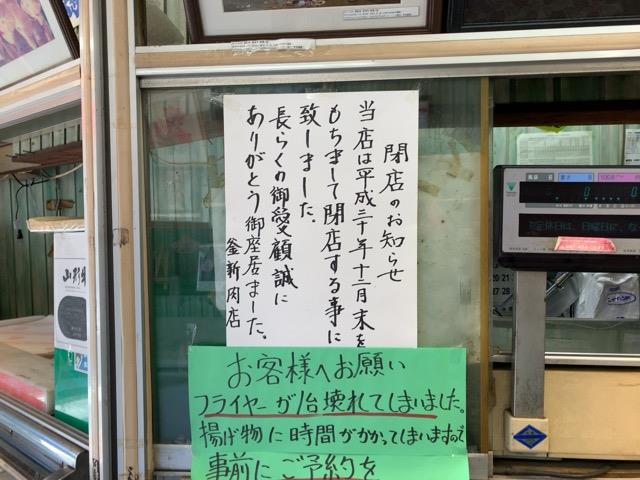 閉店のお知らせ
当店は平成三十年十二月末を
もちまして閉店する事に
致しました。
長らくの御愛顧誠に
ありがとう御座居ました。
釜新肉店
お客様へお願い
フライヤーが1台壊れてしまいました。
揚げ物に時間がかかってしまいますので
事前にご予約を
定休日は、日曜日に、な